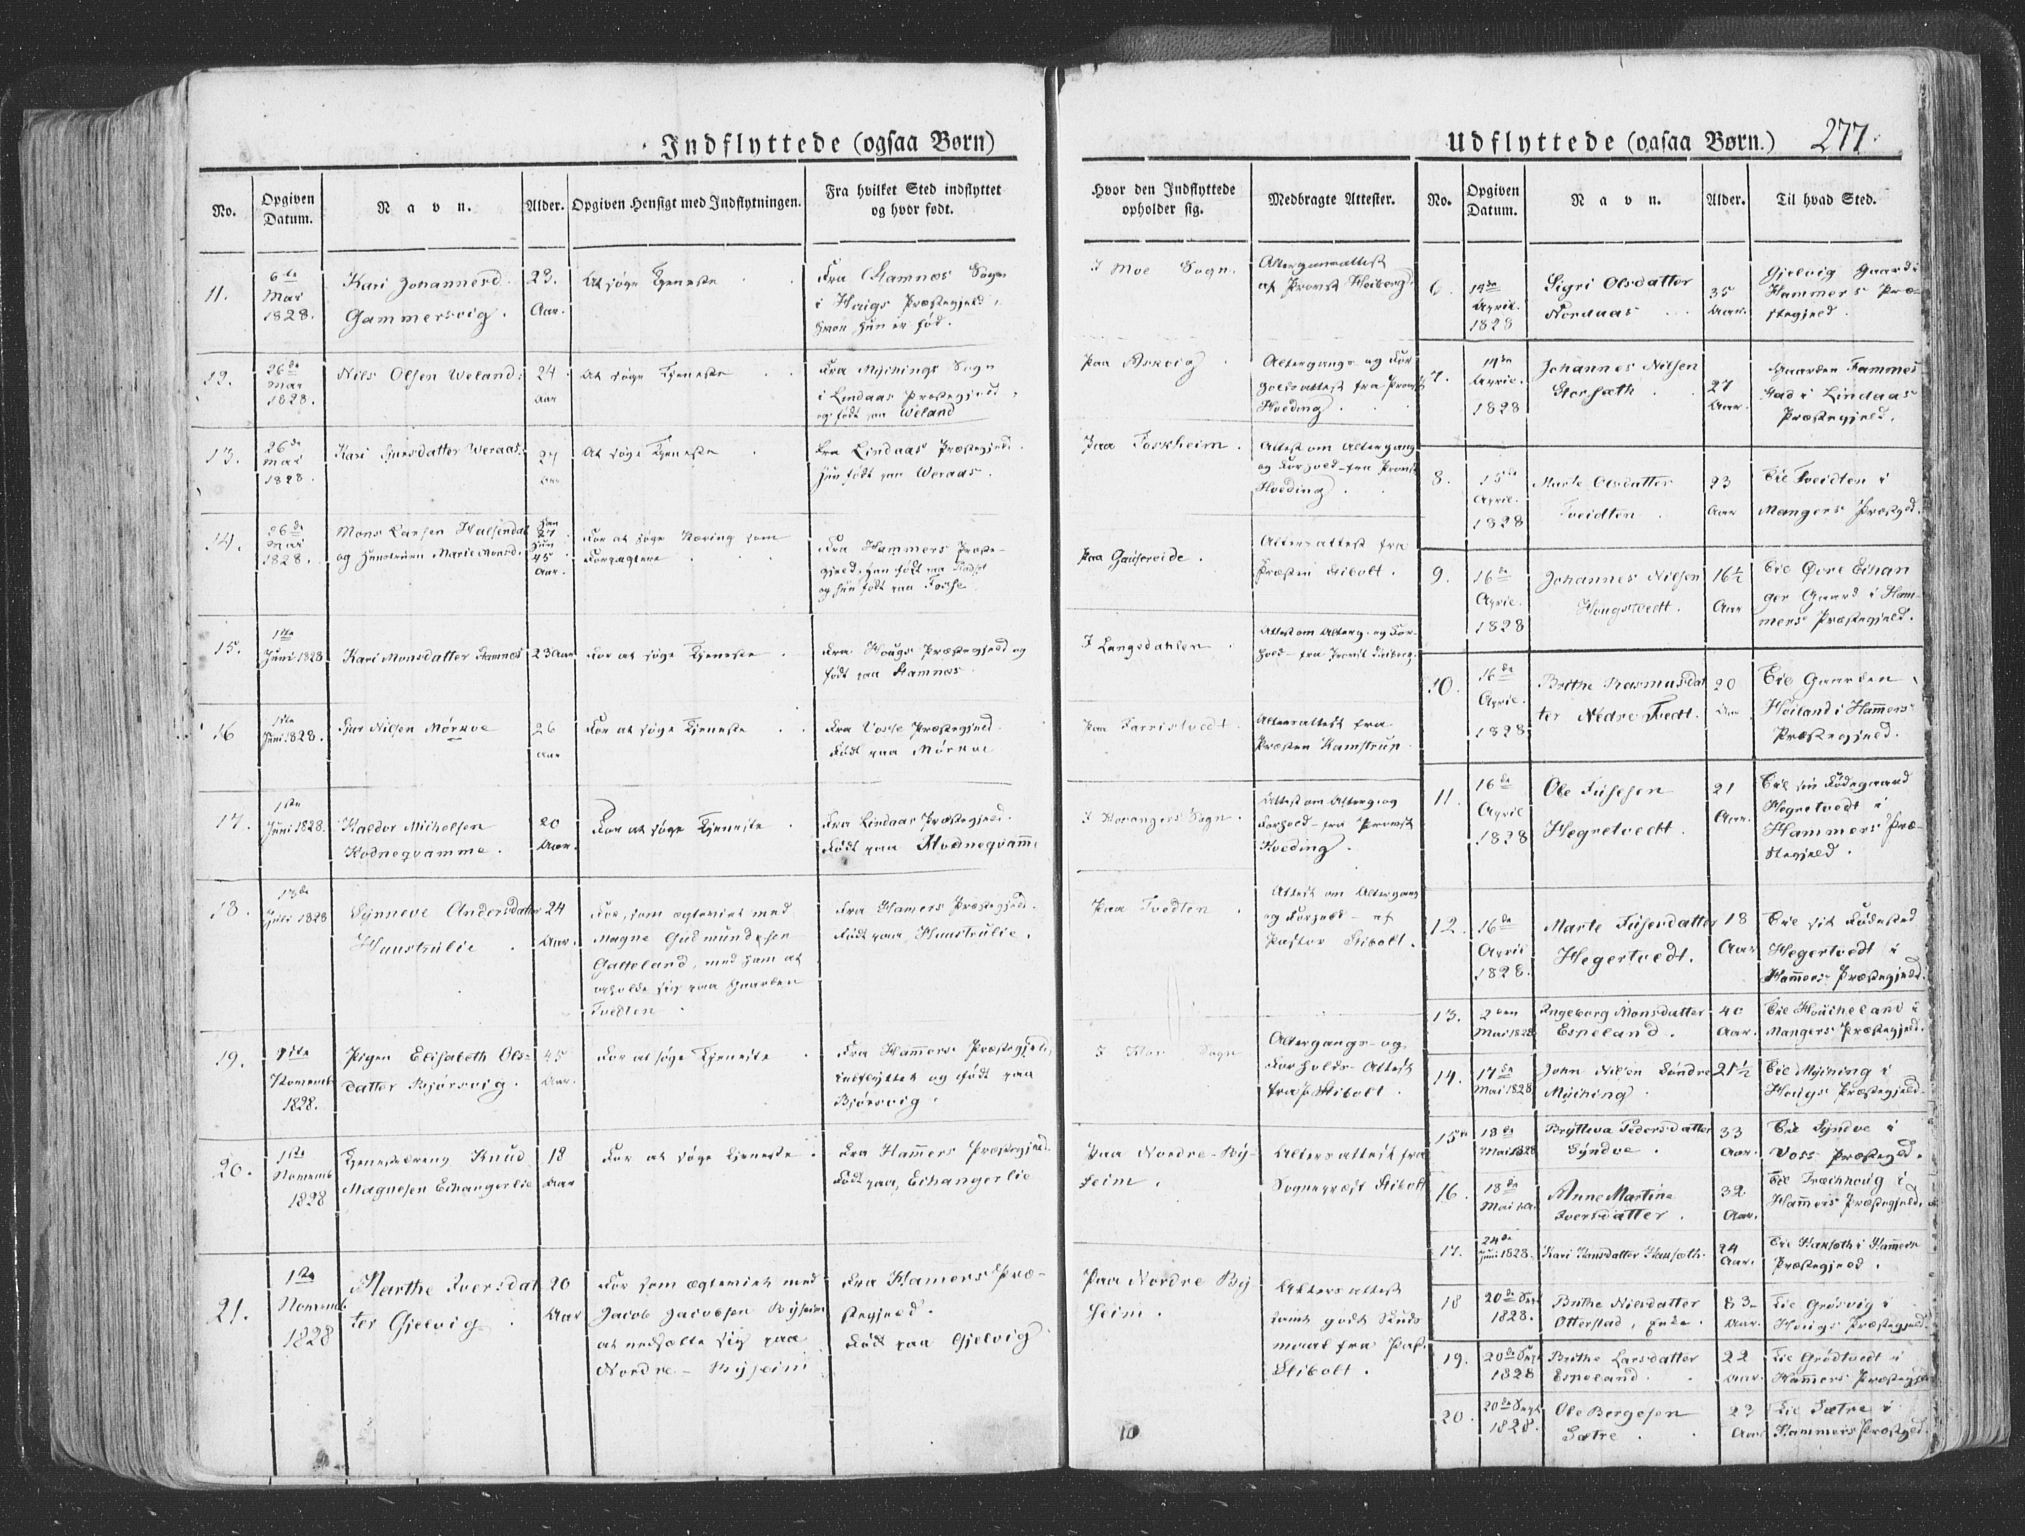 Indflyttede (ogsaa Børn)
No.
Opgiven
Datum.
Navn.
Alder.
Opgiven Hensigt med Indflytningen.
Fra hvilket Sted indflyttet
og hvor født.
11.
6te
Mai
1828.
Kari Johannesd.
Gammersvig.
23.
Aar.
At søge Tjeneste
Fra Stamnæs Sogn
i Haugs Præstegjeld,
hvor hun er fød.
12.
26de
Mai
1828.
Nils Olsen Weland
24
Aar
At søge Tjeneste
Fra Myhings Sogn
i Lindaas Præstegjeld,
og født paa Weland
13.
26de
Mai
1828.
Kari
Weraas
Aar
At søge Tjeneste
Fra Lindaas Præstegjeld.
hun født paa Weraas.
14.
26de
Mai
1828.
Mons Larsen
og Hustruen Marie Monsd.
han
27
hun
45
Aar.
For at søge Næring som
Fra Hammers Præste-
gjeld, han født paa
og hun født paa
15.
1ste
Juni 1828
Kari Monsdatter Stamnæs
23 Aar
For at søge Tjeneste
Fra Hougs Præstegjeld og
født paa Stamnæs
16
1ste
Juni 1828.
Nilsen Mørkve
26
Aar
For at søge Tjeneste
Fra Vosse Præstegjeld
Født paa Mørkve
17.
1ste
Juni 1828.
Haldor Michelsen
Kodneqvamme.
20
Aar.
For at søge Tjeneste
Fra Lindaas Præstegjeld.
Født paa
18.
13de
Juli 1828
Synneve Andersdatter
Haustrulie
24
Aar.
For, som ægteviet med
Magne Gudmundsen
Gatteland, med ham at
opholde sig paa Gaarden
Tvedten
Fra Hamers Præstegjeld.
Født paa Haustrulie.
19.
1ste
Novemb.
1828.
Pigen Elisabeth Ols-
datter Bjørsvig.
45
Aar.
For at søge Tjeneste
Fra Hammers Præstegjeld,
indflyttet og født paa
Bjørsvig.
20.
1ste
Novemb
1828
Tjenestedreng Knud
Magnesen Eihangerlie
18
Aar
For at søge Tjeneste
Fra Hammers Præstegjeld.
Født paa Eihangerlie
21.
1ste
Novemb.
1828
Marthe Iversdat
ter Gjelvig
20
Aar
For som ægteviet med
Jacob Jacobsen Byseim
at nedsætte sig paa
Nordre- Byseim
Fra Hamers Præ-
stegjeld.
Født paa Gjelvig
Udflyttede (ogsaa Børn.)
277.
Hvor den Indflyttede
opholder sig.
Medbragte Attester.
I Moe Sogn.
af Provst Heiberg.
Paa
Altergangs og For-
holdsattest fra Provst
Hveding.
Paa Foskheim.
Attest om Altergang
og Forhold fra Provst
Hveding
Paa Gausereide.
Altersattest fra
Præsten Stibolt.
I Langedahlen
Attest om Alterg. og For-
hold fra Provst Heiberg.
Paa Farristvedt
Altersattest fra
Præsten Kamstrup.
I Sogn.
Attest om Alterg. og
Forhold fra Provst
Hveding.
Paa Tvedten
Attest om Altergang
og Forhold af
Pastor Stibolt.
I Sogn
Altergangs- og
Forholds-Attest
fra P Stibolt.
Paa Nordre-By-
seim.
Altersattest fra
Sognepræst Stibolt
Paa Nordre By
seim.
Altersattest
samt godt Skuds
maal fra Past.
Stibolt.
No.
Opgiven
Datum.
Navn.
Alder.
Til hvad Sted.
6.
14de
April.
1828
Sigri Olsdatter
Nordaas
35
Aar.
Gjelvig Gaard i
Hammers Præ-
stegjeld.
7.
14de
April.
1828
Johannes Nilsen
Storsæth
27
Aar.
Gaarden Fammes
tad i Lindaas
Præstegjeld.
8.
15de
April.
1828
Marte Olsdatter
Tveidten
23
Aar
Til Tveidten i
Mangers Præstegjed.
9.
16de
April.
1828
Johannes Nilsen
Hougstvedt.
16½
Aar
Til Øvre Eihan
ger Gaard i Ham-
mers Præstegjeld.
10.
16de
April.
1828
Brithe Rasmusdat
ter Nedre Tvedt.
20
Aar
Til Gaarden
Høiland i Hamers
Præstegjeld.
11.
16de
April
1828
Ole
Hegretvedt.
21
Aar.
Til sin Fødegaard
Hegretvedt i
Hammers Præ-
stegjeld.
12.
16de
April
1828.
Marte
Hegertvedt.
18
Aar
Til sit Fødested
Hegertvedt i
Hamers Præstegjeld.
13.
2den
Mai 1828
Ingeborg Monsdatter
Espeland.
40
Aar.
Til i
Mangers Præstegjeld.
14.
17de
Mai 1828
John Nilsen Søndre
Myhing
21½
Til Myhing i
Hougs Præstegjeld.
15.
18de
Mai 1828
Brytteva Pedersdatter
Syndve.
33
Aar.
Til Syndve i
Voss Præstegjed.
16.
18de
Mai
Anne Martine
Iversdatter.
32
Aar.
Til i
Hammers Præstegjeld.
17.
24de
Juni 1828.
Kari Hansdatter
24
Aar.
Til i Hammers
Præstegjeld.
18
20de Sept
1828.
Brithe Nielsdatter
Otterstad, Enke.
83
Aar.
Til Grøsvig i
Hougs Præstegjeld.
19.
20de Sept
1828
Brithe Larsdatter
Espeland.
22
Aar.
Til Grødtvedt i
Hammers Præstegjeld
20.
20de Sept
1828.
Ole Bergesen
Sætre.
23
Aar
Til Sætre i
Hammers Præstgjed.
10